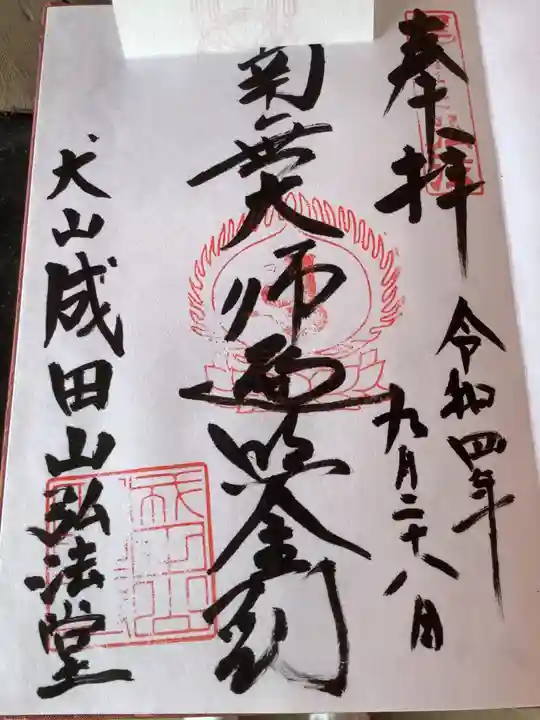 奉拝
令和四年
九月二十八日
南無大師遍照金剛
犬山成田山弘法堂
成田山